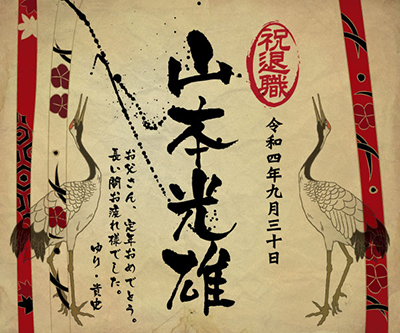 祝退職
令和四年九月三十日
山本光雄
お父さん、定年おめでとう。
長い間お疲れ様でした。
ゆり・貴蛇